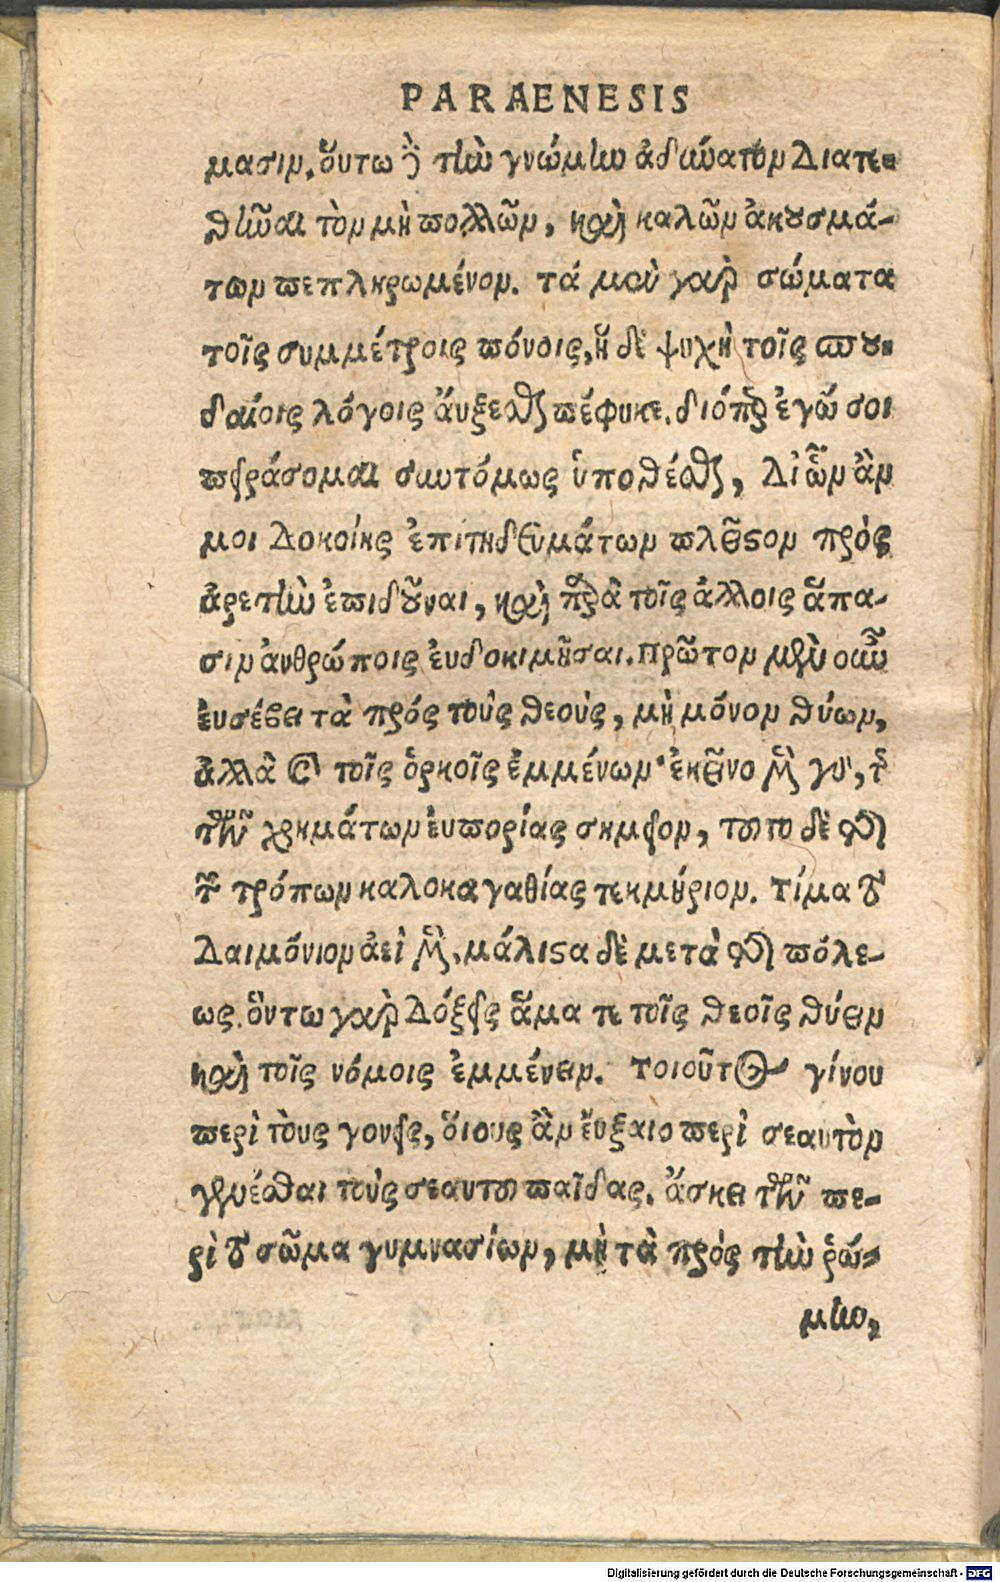 PARAENESIS
μασιν. ὅυτω ϗ̀ τὴν γνώμην ἀδύνατον διατε-
θῆναι τὸν μὴ πολλῶν, καὶ καλῶν ἀκουσμά-
των πεπληρωμένον. τά μὲν γὰρ σώματα
τοῖς συμμέτροις πόνοις, ἡ δὲ ψυχὴ τοῖς σπου-
δαίοις λόγοις ἄυξεσθαι πέφυκε. διόπερ ἐγώ σοι
πειράσομαι συντόμως ὑποθέσθαι, δι' ὧν ἂν
μοι δοκοίης ἐπιτηδευμάτων πλεῖστον πρὸς
ἀρετὴν ἐπιδοῦναι, καὶ παρὰ τοῖς ἄλλοις ἅπα-
σιν ἀνθρώποις ἐυδοκιμῆσαι. Πρῶτον μὲν οὖν
ἐυσέβει τὰ πρός τοὺς θεοὺς, μὴ μόνον θύων,
ἀλλὰ καὶ τοῖς ὅρκοις ἐμμένων· ἐκεῖνο μὲν γὰρ, τῆς
τῶν χρημάτων ἐυπορίας σημεῖον, τοῦτο δὲ τῆς
τῶν τρόπων καλοκαγαθίας τεκμήριον. Τίμα τὸ
Δαιμόνιον ἀεὶ μὲν, μάλιστα δὲ μετὰ τῆς πόλε-
ως. ὅυτω γὰρ δόξεις ἅμα τε τοῖς θεοῖς θύειν
καὶ τοῖς νόμοις ἐμμένειν. Τοιοῦτος γίνου
περὶ τοὺς γονεῖς, ὅιους ἂν ἔυξαιο περὶ σεαυτὸν
γενέσθαι τοὺς σεαυτοῦ παῖδας. ἄσκει τῶν πε-
ρὶ τὸ σῶμα γυμνασίων, μὴ τὰ πρὸς τὴν ῥώ-
μην,
Digitalisierung gefördert durch die Deutsche Forschungsgemeinschaft - DFG